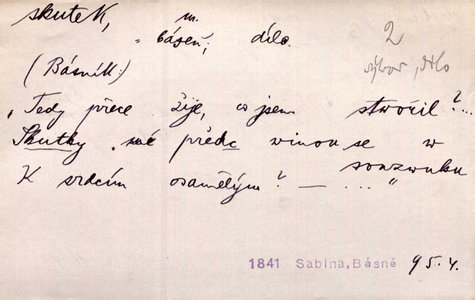 skutek, m.
báseň; dílo. 2
(Básník:) výbor, dílo
„Tedy přece žije, co jsem stvořil?...
Skutky mé předc vinou se v souzvuku
K srdcím osamělým? — ... "
1841 Sabina, Básně 95.4.